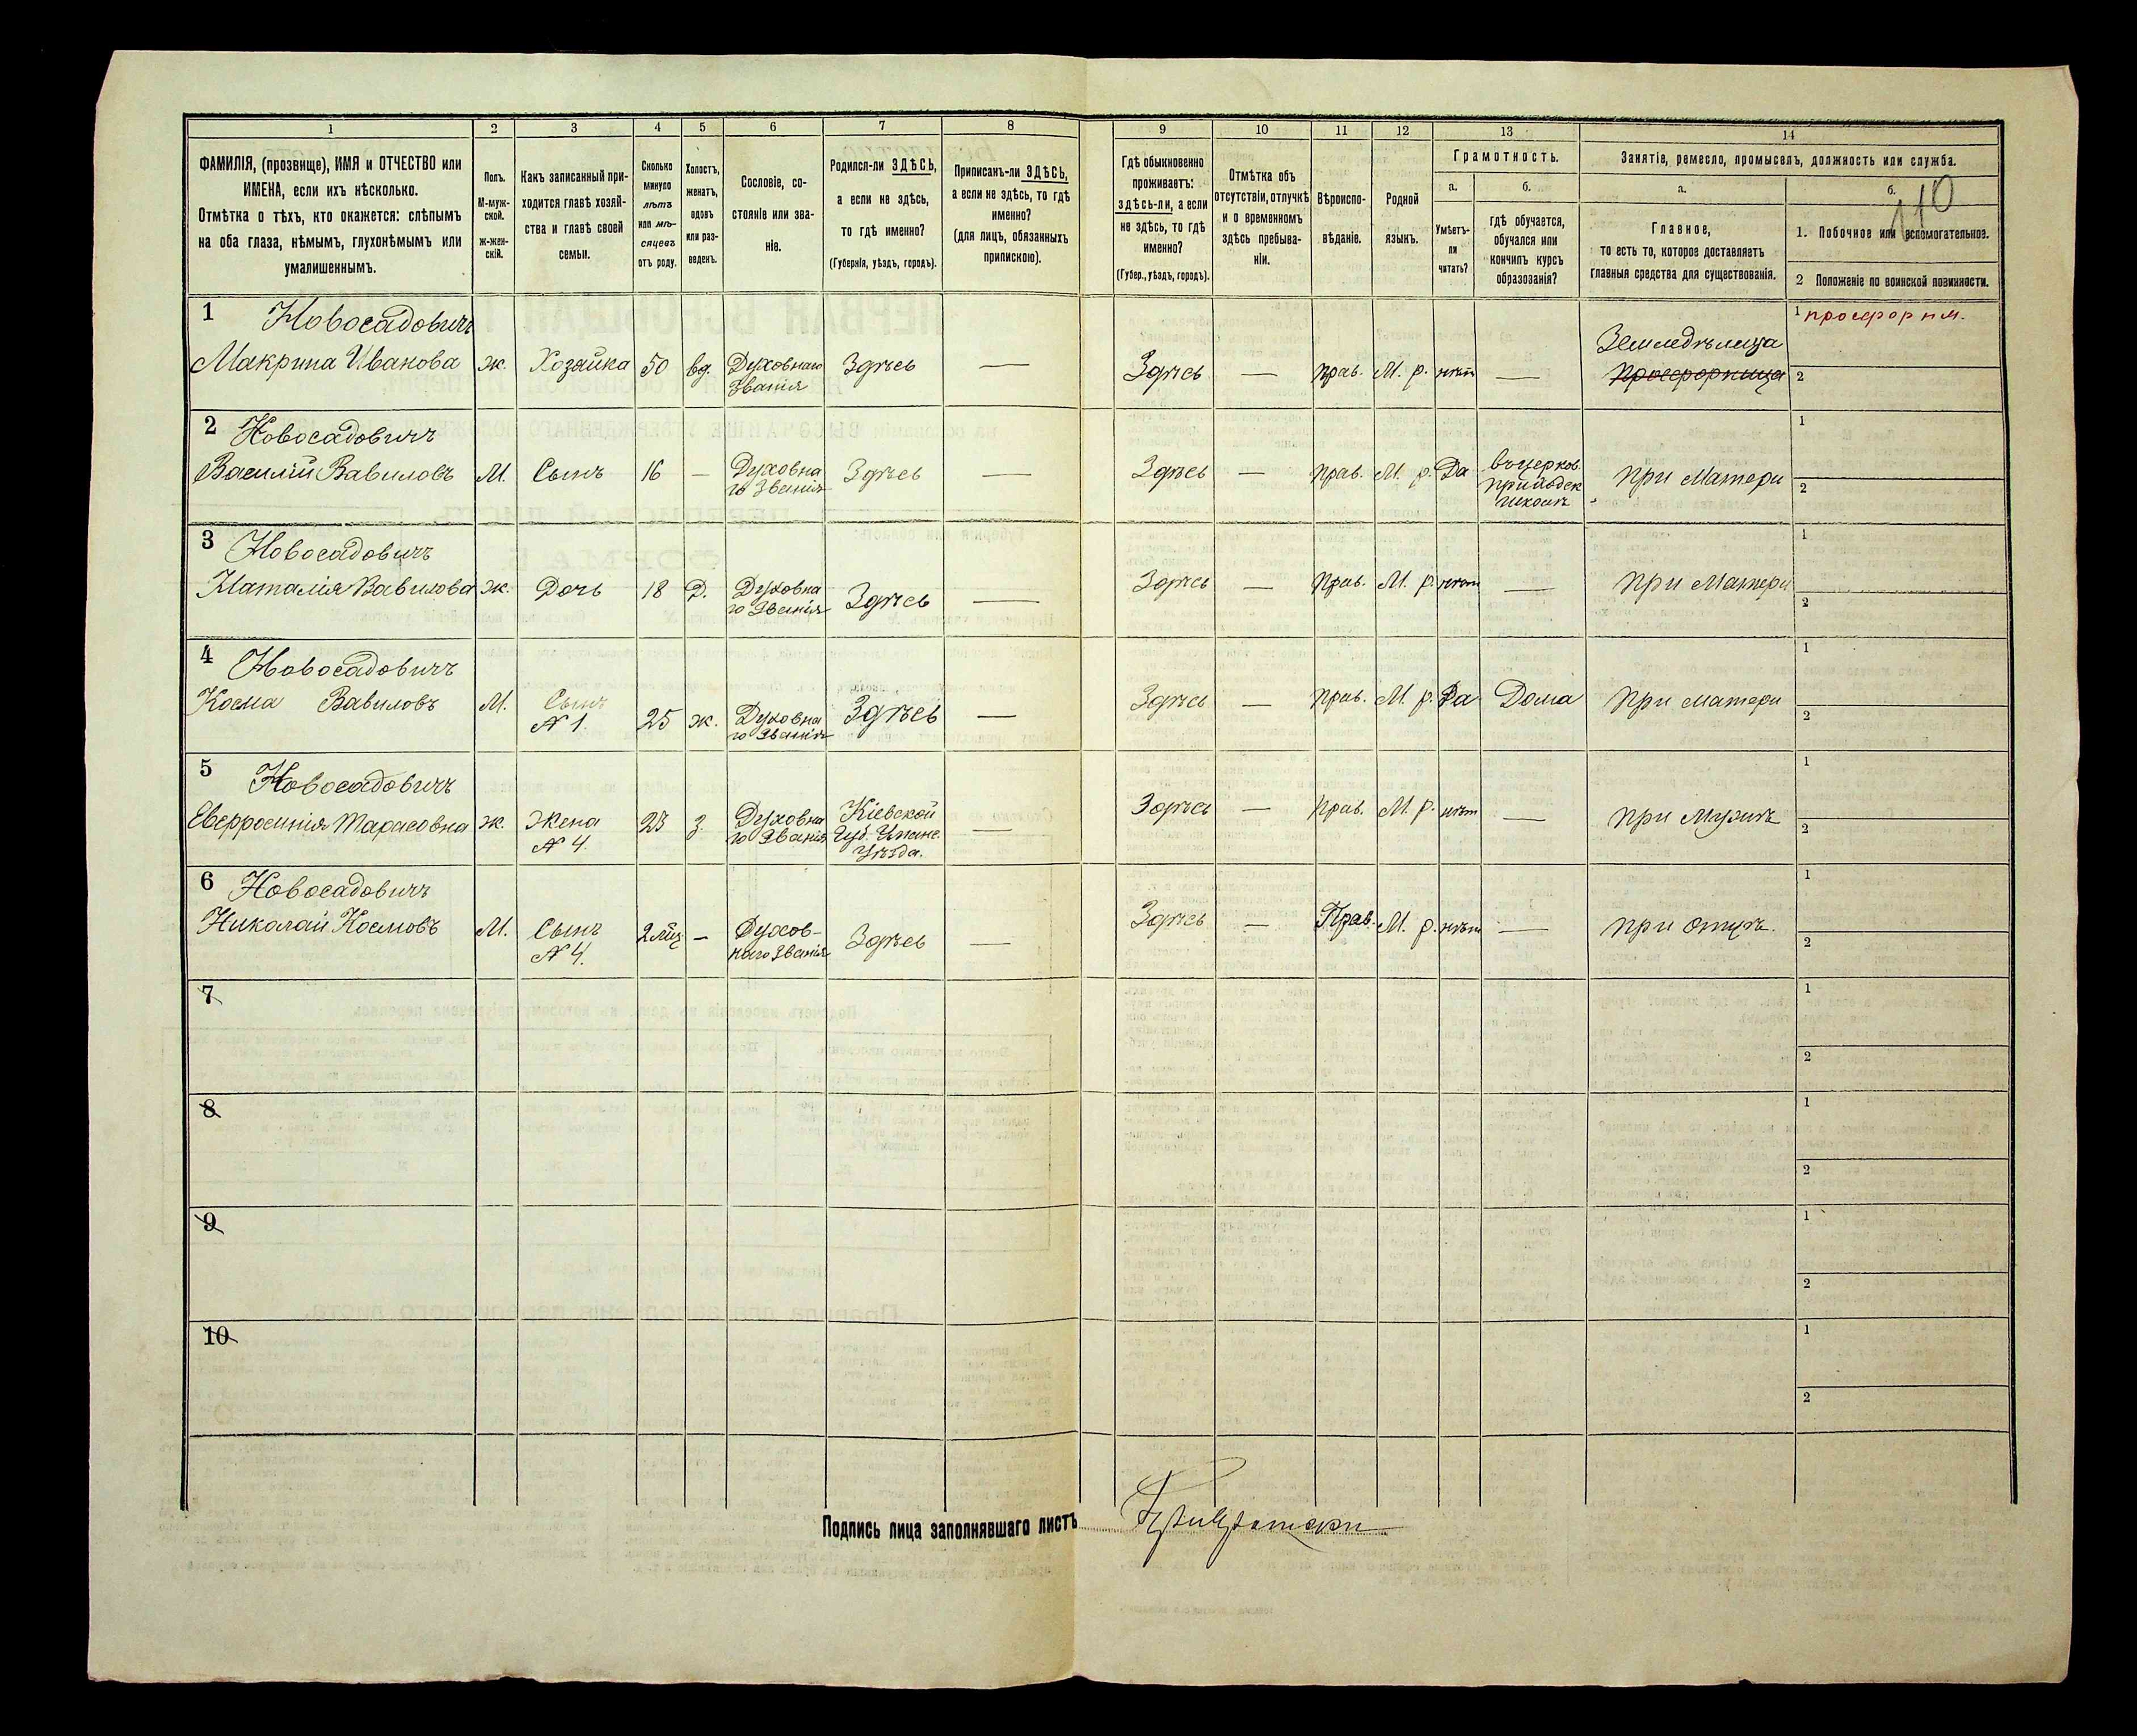 1 2 3 4 5 6 7 8 9 10 11 12 13 14
ФАМИЛІЯ, (прозвище), ИМЯ и ОТЧЕСТВО или
ИМЕНА, если ихъ нѣсколько.
Отмѣтка о тѣхъ, кто окажется: слѣпымъ
на оба глаза, нѣмымъ, глухонѣмымъ или
умалишеннымъ.
Полъ.
М-муж-
ской.
ж-жен-
скій.
Какъ записанный при-
ходится главѣ хозяй-
ства и главѣ своей
семьи.
Сколько
минуло
лѣтъ
или мѣ-
сяцевъ
отъ роду.
Холостъ,
женатъ,
вдовъ
или раз-
веденъ.
Сословіе, со-
стояніе или зва-
ніе.
Родился-ли ЗДѢСЬ,
а если не здѣсь,
то гдѣ именно?
(Губернія, уѣздъ, городъ).
Приписанъ-ли ЗДѢСЬ,
а если не здѣсь, то гдѣ
именно?
(для лицъ, обязанныхъ
припискою).
Гдѣ обыкновенно
проживаетъ:
здѣсь-ли, а если
не здѣсь, то гдѣ
именно?
(Губер., уѣздъ, городъ).
Отмѣтка объ
отсутствіи, отлучкѣ
и о временномъ
здѣсь пребыва-
ніи.
Вѣроиспо-
вѣданіе.
Родной
языкъ.
Грамотность.
а.
Умѣетъ-
ли
читать?
б.
Гдѣ обучается,
обучался или
кончилъ курсъ
образованія?
Занятіе, ремесло, промыселъ, должность или служба.
а.
Главное,
то есть то, которое доставляетъ
главныя средства для существованія.
б.
110
1. Побочное или вспомогательное.
2 Положеніе по воинской повинности.
1 Новосадовичъ
Макрина Иванова ж. Хозяйка 50 вд. Духовнаго
Званія Здѣсь — Здѣсь — прав. М. р. нѣт — Земледѣлица
Просфорница
1 просфорнм.
2
2 Новосадовичъ
Василій Вавиловъ М. Сынъ 16 — Духовна
го Званія Здѣсь — Здѣсь — прав. М. р. Да въ церков.
приходск
школѣ при Матери
1
2
3 Новосадовичъ
Наталія Вавилова ж. Дочь 18 Д. Духовна
го Званія Здѣсь — Здѣсь — прав. М. р. нѣт — при Матери
1
2
4 Новосадовичъ
Косма Вавиловъ М. Сынъ
№ 1. 25 ж. Духовна
го Званія Здѣсь — Здѣсь — прав. М. р. Да Дома при матери
1
2
5 Новосадовичъ
Евфросинія Тарасовна ж. Жена
№ 4. 23 з. Духовна
го Званія Кіевской
Губ.
Уѣзда. — Здѣсь — прав. М. р. нѣт — при Мужѣ
1
2
6 Новосадовичъ
Николай Космовъ М. Сынъ
№ 4. 2 мц — Духов-
наго Званія Здѣсь — Здѣсь — Прав. М. р. нѣт — при отцѣ.
1
2
7
1
2
8
1
2
9
1
2
10
1
2
Подпись лица заполнявшаго листъ